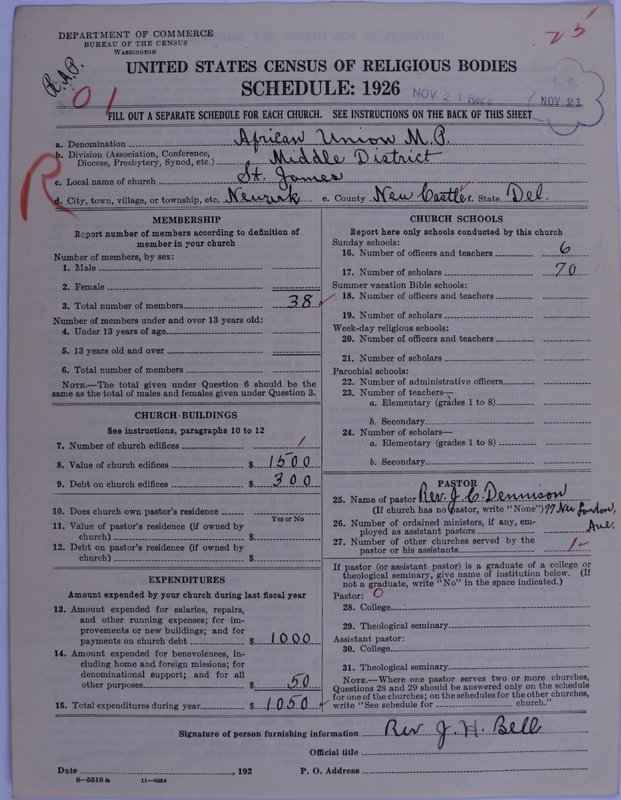 DEPARTMENT OF COMMERCE
BUREAU OF THE CENSUS
WASHINGTON
R.A.P.
01
25
UNITED STATES CENSUS OF RELIGIOUS BODIES
SCHEDULE: 1926
NOV 2 1
NOV 21
FILL OUT A SEPARATE SCHEDULE FOR EACH CHURCH. SEE INSTRUCTIONS ON THE BACK OF THIS SHEET
R
a. Denomination African Union M.P.
b. Division (Association, Conference, Diocese, Presbytery, Synod, etc.) Middle District
c. Local name of church St. James
d. City, town, village, or township, etc. Newark e. County New Castle f. State Del.
MEMBERSHIP
Report number of members according to definition of
member in your church
Number of members, by sex:
1. Male
2. Female
3. Total number of members 38
Number of members under and over 13 years old:
4. Under 13 years of age
5. 13 years old and over
6. Total number of members
NOTE.—The total given under Question 6 should be
same as the total of males and females given under Question 3.
CHURCH BUILDINGS
See instructions, paragraphs 10 to 12
7. Number of church edifices 1
8. Value of church edifices $ 1500
9. Debt on church edifices $ 300
10. Does church own pastor's residence
Yes or No
11. Value of pastor's residence (if owned by
church) $
12. Debt on pastor's residence (if owned by
church) $
EXPENDITURES
Amount expended by your church during last fiscal year
13. Amount expended for salaries, repairs,
and other running expenses; for im-
provements or new buildings; and for
payments on church debt $ 1000
14. Amount expended for benevolences, in-
cluding home and foreign missions; for
denominational support; and for all
other purposes $ 50
15. Total expenditures during year $ 1050
CHURCH SCHOOLS
Report here only schools conducted by this church
Sunday schools:
16. Number of officers and teachers 6
17. Number of scholars 70
Summer vacation Bible schools:
18. Number of officers and teachers
19. Number of scholars
Week-day religious schools:
20. Number of officers and teachers
21. Number of scholars
Parochial schools:
22. Number of administrative officers
23. Number of teachers—
a. Elementary (grades 1 to 8)
b. Secondary
24. Number of scholars—
a. Elementary (grades 1 to 8)
b. Secondary
PASTOR
25. Name of pastor Rev. J. C. Dennison
(If church has no pastor, write "None") 77 New London,
Ave.
26. Number of ordained ministers, if any, em-
ployed as assistant pastors
27. Number of other churches served by the
pastor or his assistants 1
If pastor (or assistant pastor) is a graduate of a college or
theological seminary, give name of institution below. (If
not a graduate, write "No" in the space indicated.)
Pastor: 0
28. College
29. Theological seminary
Assistant pastor:
30. College
31. Theological seminary
NOTE.—Where one pastor serves two or more churches,
Questions 28 and 29 should be answered only on the schedule
for one of the churches; on the schedules for the other churches,
write "See schedule for church."
Signature of person furnishing information Rev. J. H. Bell
Official title
Date , 192 P. O. Address
8—5518a 11—9084